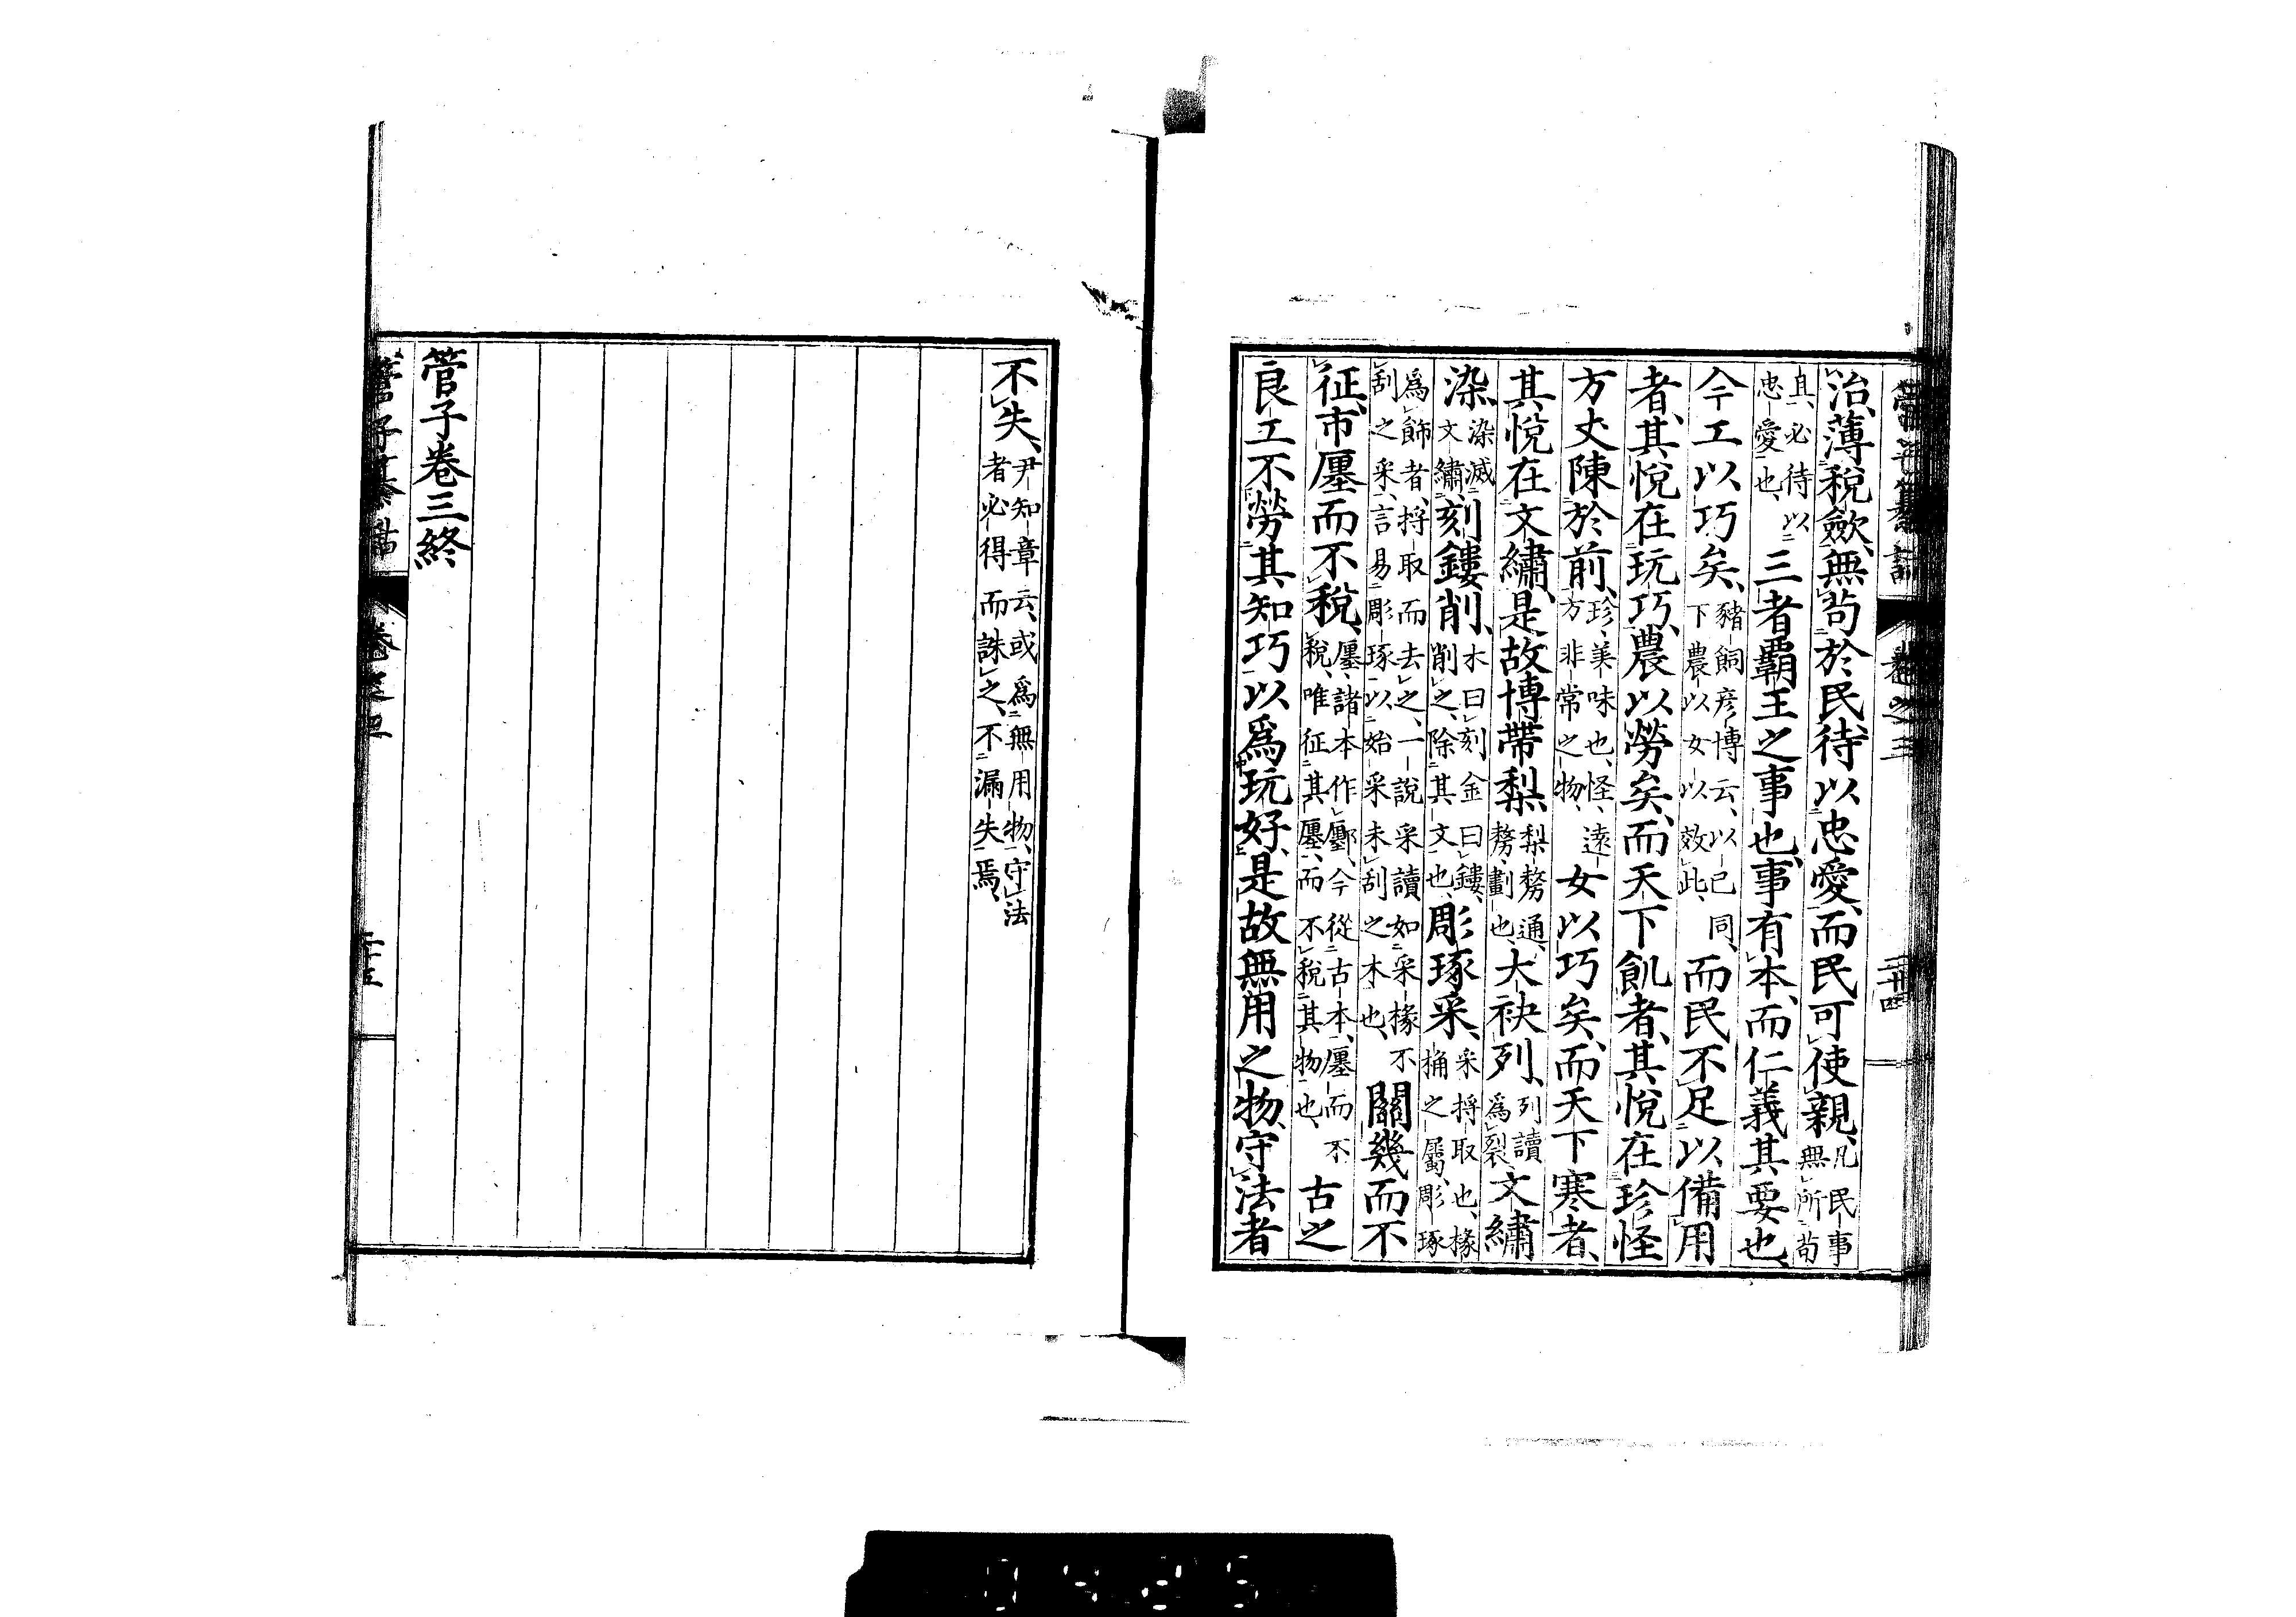 管子纂詁 卷之三 二十四
治、薄税斂、無苟於民、待以忠愛、而民可使親、凡民事無所苟
且、必待以忠愛也、三者霸王之事也、事有本、而仁義其要也、
今工以巧矣、豬飼彦博云、以已同、下農以女以效此、而民不足以備用
者、其悅在玩巧、農以勞矣、而天下飢者、其悅在珍怪
方丈陳於前、珍、美味也、怪、遠方非常之物、女以巧矣、而天下寒者、
其悅在文繡、是故博帶梨、梨㓨通、㓨、劃也、大袂列、列讀爲裂、文繡
染、染滅文繡、刻鏤削、木曰刻、金曰鏤、削之、除其文也、彫琢采、采捋取也、椽桷之屬、彫琢
爲飾者、捋取而去之、一説采讀如采椽不刮之采、言易彫琢以始采未刮之木也、關幾而不
征、市廛而不税、廛、諸本作鄽、今從古本、廛而不税、唯征其廛、而不税其物也、古之
良工不勞其知巧以爲玩好、是故無用之物、守法者
不失、尹知章云、或爲無用物、守法者必得而誅之、不漏失焉、
管子卷三終
管子纂詁 卷之三 二十五